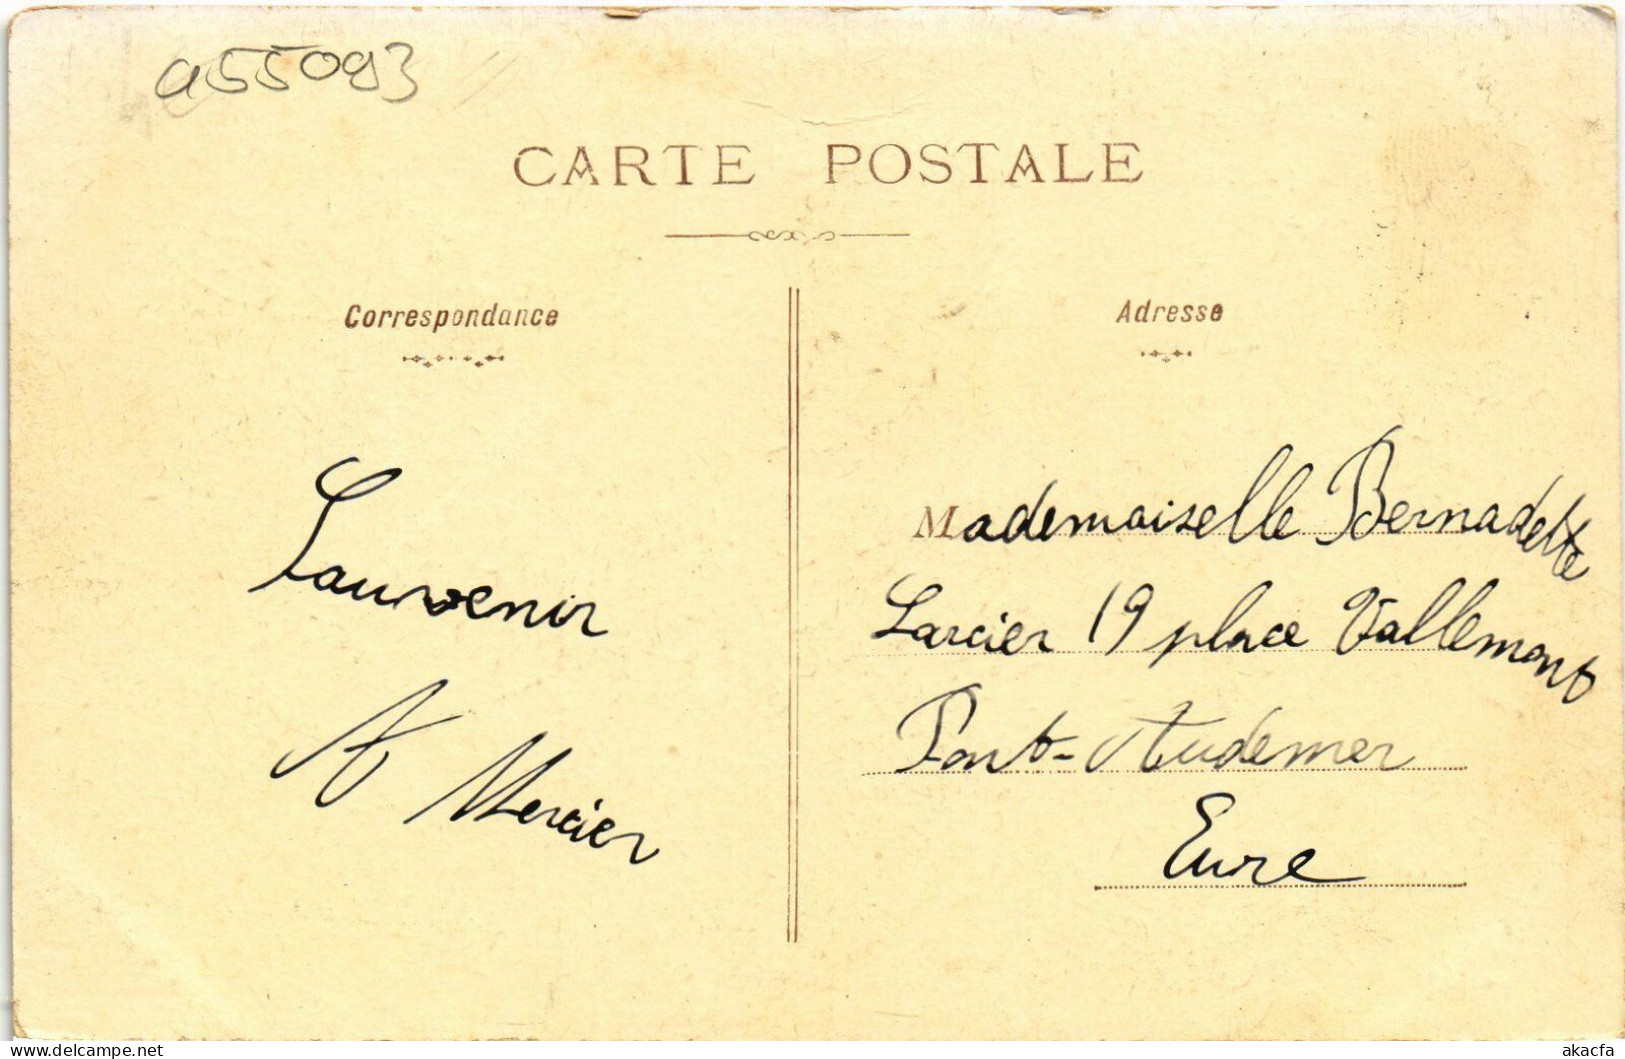 a55093
CARTE POSTALE
Correspondance
Adresse
Souvenir
A Mercier
Mademoiselle Bernadette
Larcier 19 place Vallemont
Pont-Audemer
Eure
delcampe.net
akacfa